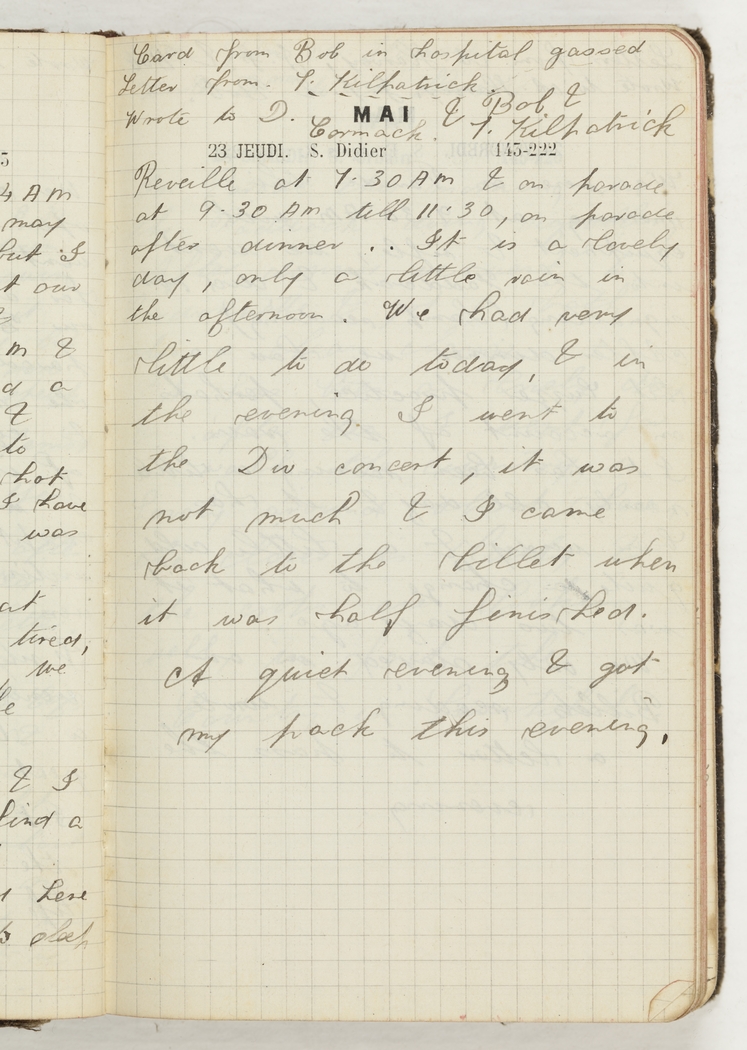 Card from Bob in hospital gassed
Letter from. T. Kilpatrick.
Wrote to D. Cormack. & Bob & T. Kilpatrick
MAI
23 JEUDI. S. Didier 143-222
Reveille at 7.30 AM & on parade
at 9.30 AM till 11.30, on parade
after dinner .. It is a lovely
day, only a little rain in
the afternoon. We had very
little to do today, & in
the evening. I went to
the Div concert, it was
not much & I came
back to the billet when
it was half finished.
A quiet evening & got
my pack this evening.
4 AM
may
but I
t our
m &
d a
&
to
hot
I have
was
at
tired,
we
& I
find a
here